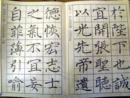 於陛下也誠
宜開張聖聽
以光先帝遺
德恢宏志士
之氣不宜妄
自菲薄引喻